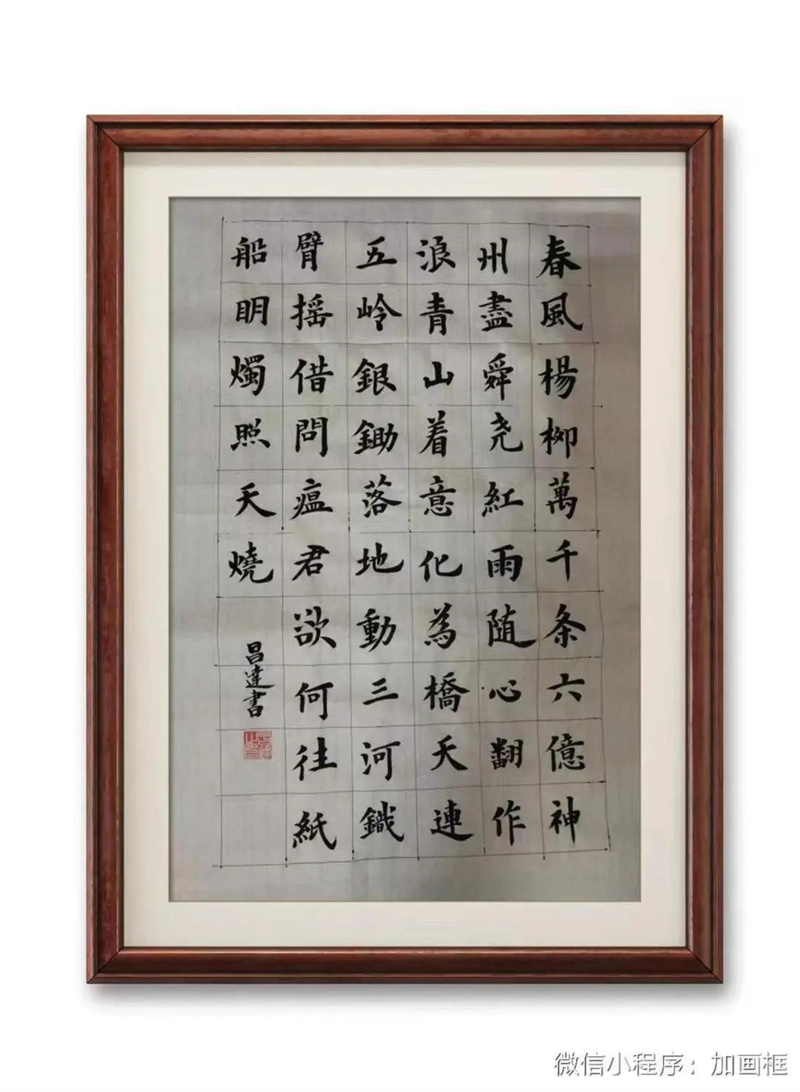 春風楊柳萬千条六億神
州盡舜尧紅雨随心翻作
浪青山着意化為橋天連
五岭銀鋤落地動三河鐵
臂摇借問瘟君欲何往紙
船明燭照天燒
昌達書
微信小程序：加画框